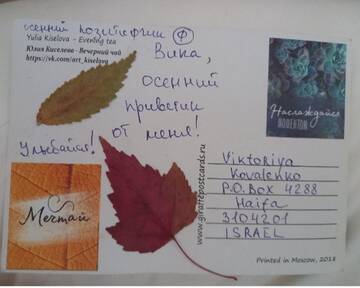 осенний позитифчик
Yulia Kiselova - Evening tea
Юлия Киселева - Вечерний чай
https://vk.com/art_kiselovy
Вика,
осенний
приветик
от меня!
Улыбайся!
Мечтай
Наслаждайся
моментом
www.giraffepostcards.ru
Viktoriya
Kovalenko
P.O.Box 4288
Haifa
3104201
ISRAEL
Printed in Moscow, 2018